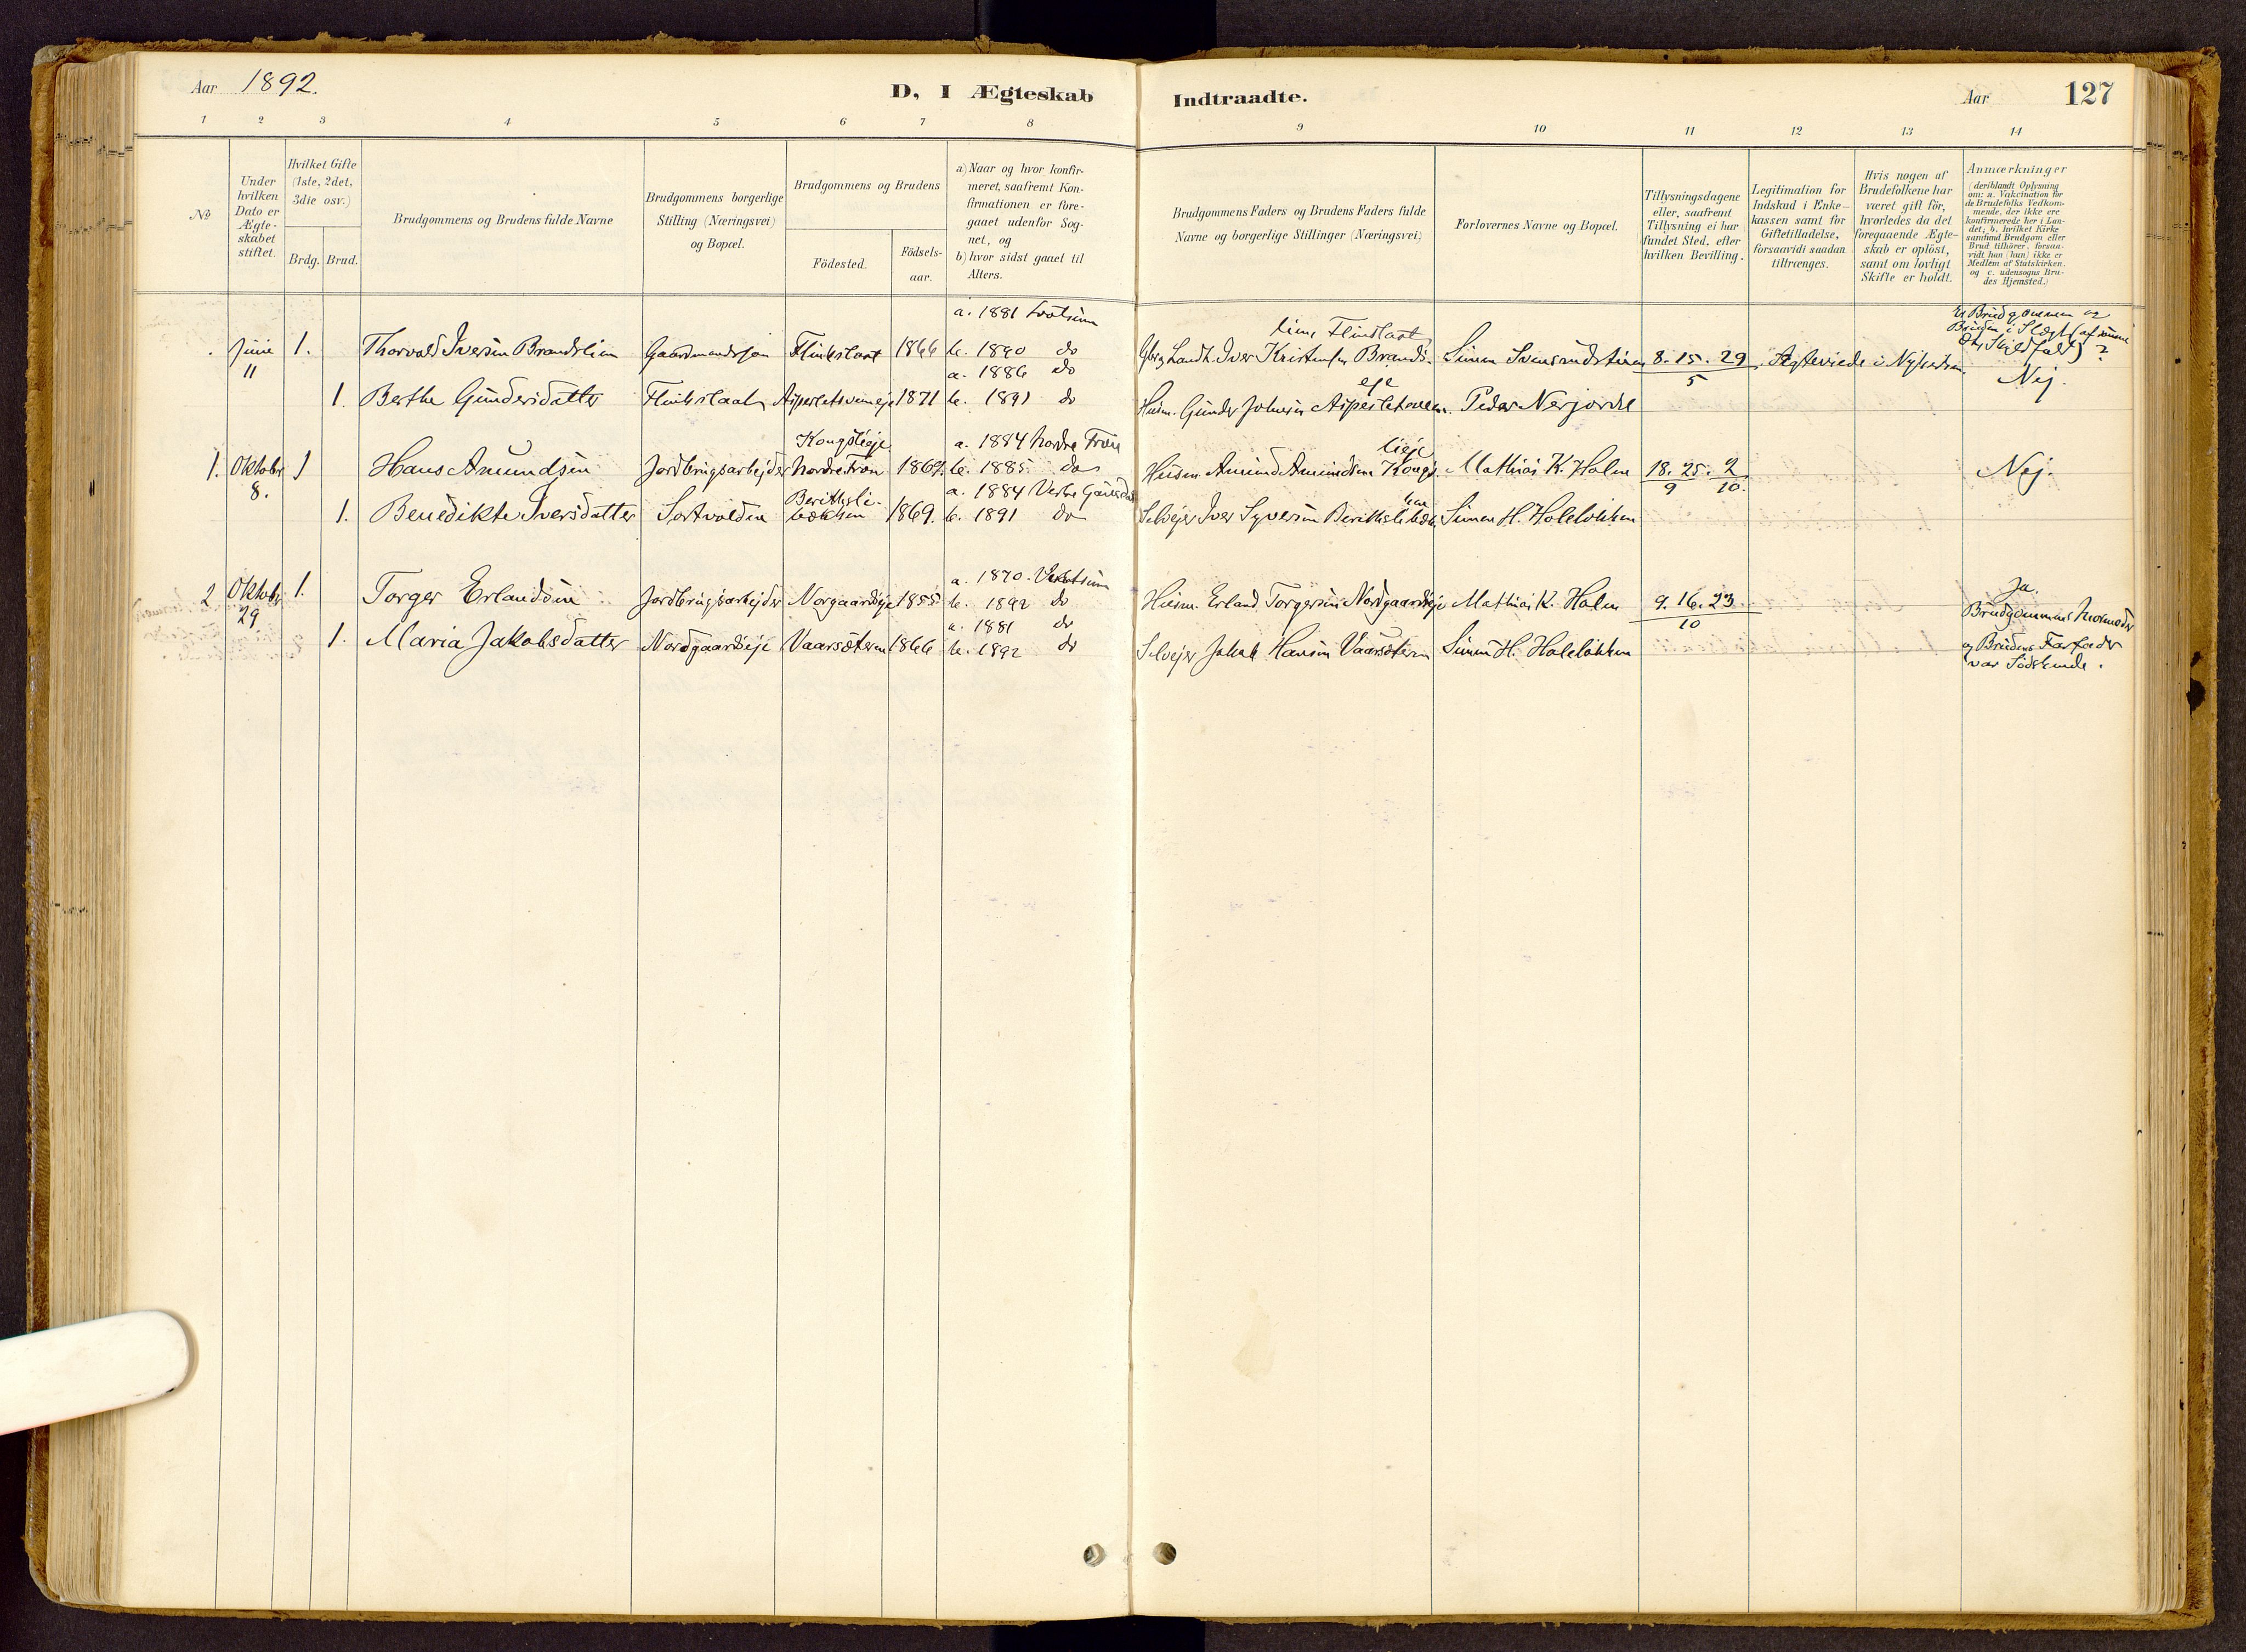 Aar 1892.
D, I Ægteskab
Indtraadte.
Aar
127
1 2 3 4 5 6 7 8
9 10 11 12 13 14
No
Under hvilken Dato er Ægte-skabet stiftet.
Hvilket Gifte (1ste, 2det, 3die osv.)
Brdg. Brud.
Brudgommens og Brudens fulde Navne
Brudgommens borgerlige Stilling (Næringsvei) og Bopæl.
Brudgommens og Brudens
Födested.
Födsels-aar.
a) Naar og hvor konfir-
meret, saafremt Kon-
firmationen er fore-
gaaet udenfor Sog-
net, og
b) hvor sidst gaaet til
Alters.
Brudgommens Faders og Brudens Faders fulde
Navne og borgerlige Stillinger (Næringsvei)
Forlovernes Navne og Bopæl.
Tillysningsdagene
eller, saafremt
Tillysning ei har
fundet Sted, efter
hvilken Bevilling.
Legitimation for
Indskud i Enke-
kassen samt for
Giftetilladelse,
forsaavidt saadan
tiltrænges.
Hvis nogen af
Brudefolkene har
været gift för,
hvorledes da det
foregaaende Ægte-
skab er oplöst,
samt om lovligt
Skifte er holdt.
Anmærkninger
(deriblandt Oplysning
om: a. Vakcination for
de Brudefolks Vedkom-
mende, der ikke ere
konfirmerede her i Lan-
det; b. hvilket Kirke
samfund Brudgom eller
Brud tilhörer, forsaa-
vidt han (hun) ikke er
Medlem af Statskirken.
og c. udensogns Bru-
des Hjemsted.)
Juni 11
1.
Thorvald Iversen Brandslien
Gaardmandssøn
1866
a. 1881
b. 1890 do
Iver Kristensen Brands-
lien,
Simen
8. 15. 29
5
Er Brudgommen og
Bruden i Slægt
?
1.
Berthe Gundersdatter
1871
a. 1886 do
b. 1891 do
Husm. Gunder Johnsen
eje
Peder Nerjordet
Nej.
1.
Oktober 8.
1
Hans Amundsen
Jordbrugsarbejder
Kongslieje
Nordre Fron
a. 1884 Nordre Fron
b. 1885. do
Husm. Amund Amundsen Kongs-
lieje
Mathias K. Holm
18. 25. 2
9 10.
Nej.
1.
Benedikte Iversdatter
Sortvolden
Berithsli-
bækken
1869.
a. 1884 Vestre Gausdal
b. 1891 do
Selvejer Iver Syversen Berithslibæk-
ken
Simen H. Holeløkken
2
Oktober 29
1.
Torger Erlandsen
Jordbrugsarbejder
Norgaardseje
1855
a. 1870.
b. 1892 do
Husm. Erland Torgersen Nordgaardseje
Mathias K. Holm
9. 16. 23
10
Ja.
Brudgommens Mormoder
og Brudens Farfader
var Södskende.
1.
Maria Jakobsdatter
Nordgaardseje
Vaarsæteren
1866
a. 1881 do
b. 1892 do
Selvejer Jakob Hansen Vaarsæteren
Simen H. Holeløkken